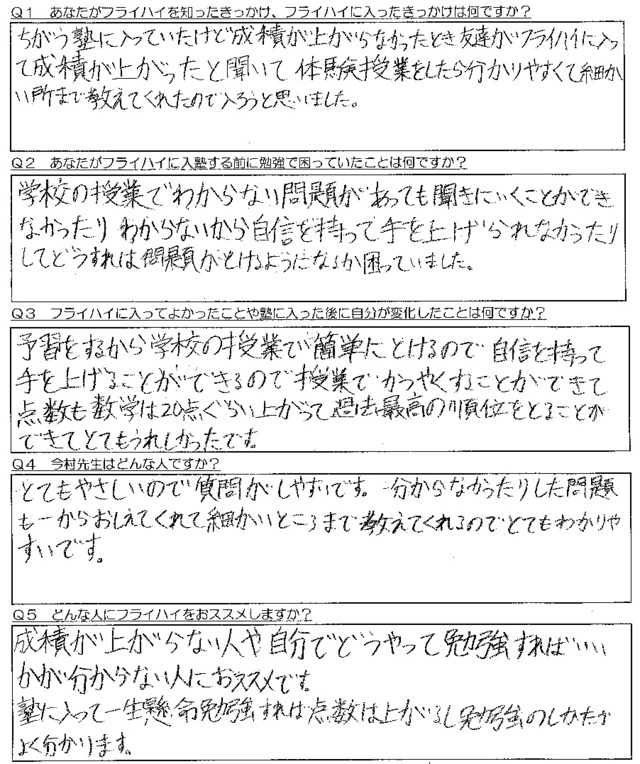 Q1 あなたがフライハイを知ったきっかけ、フライハイに入ったきっかけは何ですか？
ちがう塾に入っていたけど成積が上がらなかったとき友達がフライハイに入っ
て成積が上がったと聞いて 体験授業をしたら分かりやすくて細か
い所まで教えてくれたので入ろうと思いました。
Q2 あなたがフライハイに入塾する前に勉強で困っていたことは何ですか？
学校の授業でわからない問題があっても聞きにいくことができ
なかったり わからないから自信を持って手を上げられなかったり
してどうすれば問題がとけるようになるか困っていました。
Q3 フライハイに入ってよかったことや塾に入った後に自分が変化したことは何ですか？
予習をするから学校の授業で簡単にとけるので 自信を持って
手を上げることができるので授業でかつやくすることができて
点数も数学は20点ぐらい上がって過去最高の順位をとることが
できてとてもうれしかったです。
Q4 今村先生はどんな人ですか？
とてもやさしいので質問がしやすいです。分からなかったりした問題
も一からおしえてくれて細かいところまで教えてくれるのでとてもわかりや
すいです。
Q5 どんな人にフライハイをおススメしますか？
成積が上がらない人や自分でどうやって勉強すればいい
かが分からない人におススメです。
塾に入って一生懸命勉強すれば点数は上がるし勉強のしかたが
よく分かります。